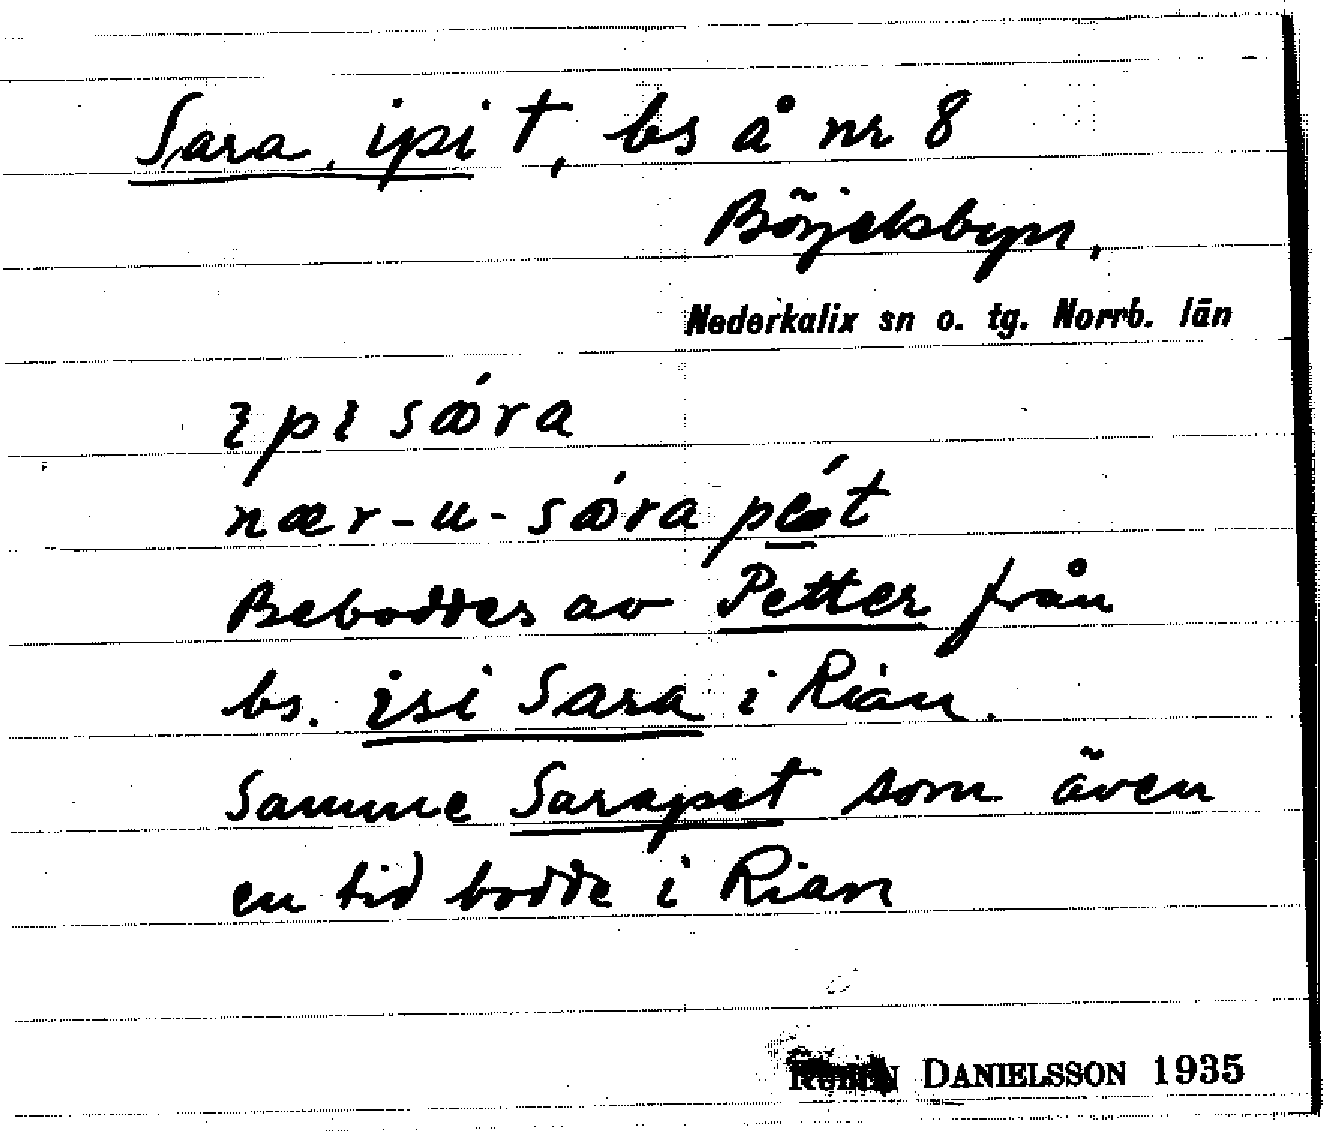 Sara, ipi †, bs å nr 8
Börjelsbyn,
Nederkalix sn o. tg. Norrb. län
ipi sǿra
nær-u-sǿra pét
Beboddes av Petter från
bs. isi Sara i Rian.
Samme Sarapet som även
en tid bodde i Rian
RUBEN DANIELSSON 1935